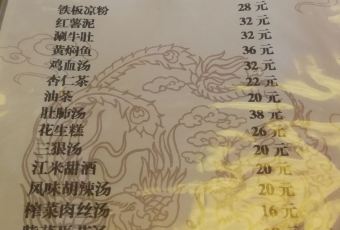 铁板凉粉 28元
红薯泥 32元
涮牛肚 32元
黄焖鱼 36元
鸡血汤 32元
杏仁茶 22元
油茶 20元
肚肺汤 38元
花生糕 26元
三狠汤 20元
江米甜酒 20元
风味胡辣汤 20元
榨菜肉丝汤 16元